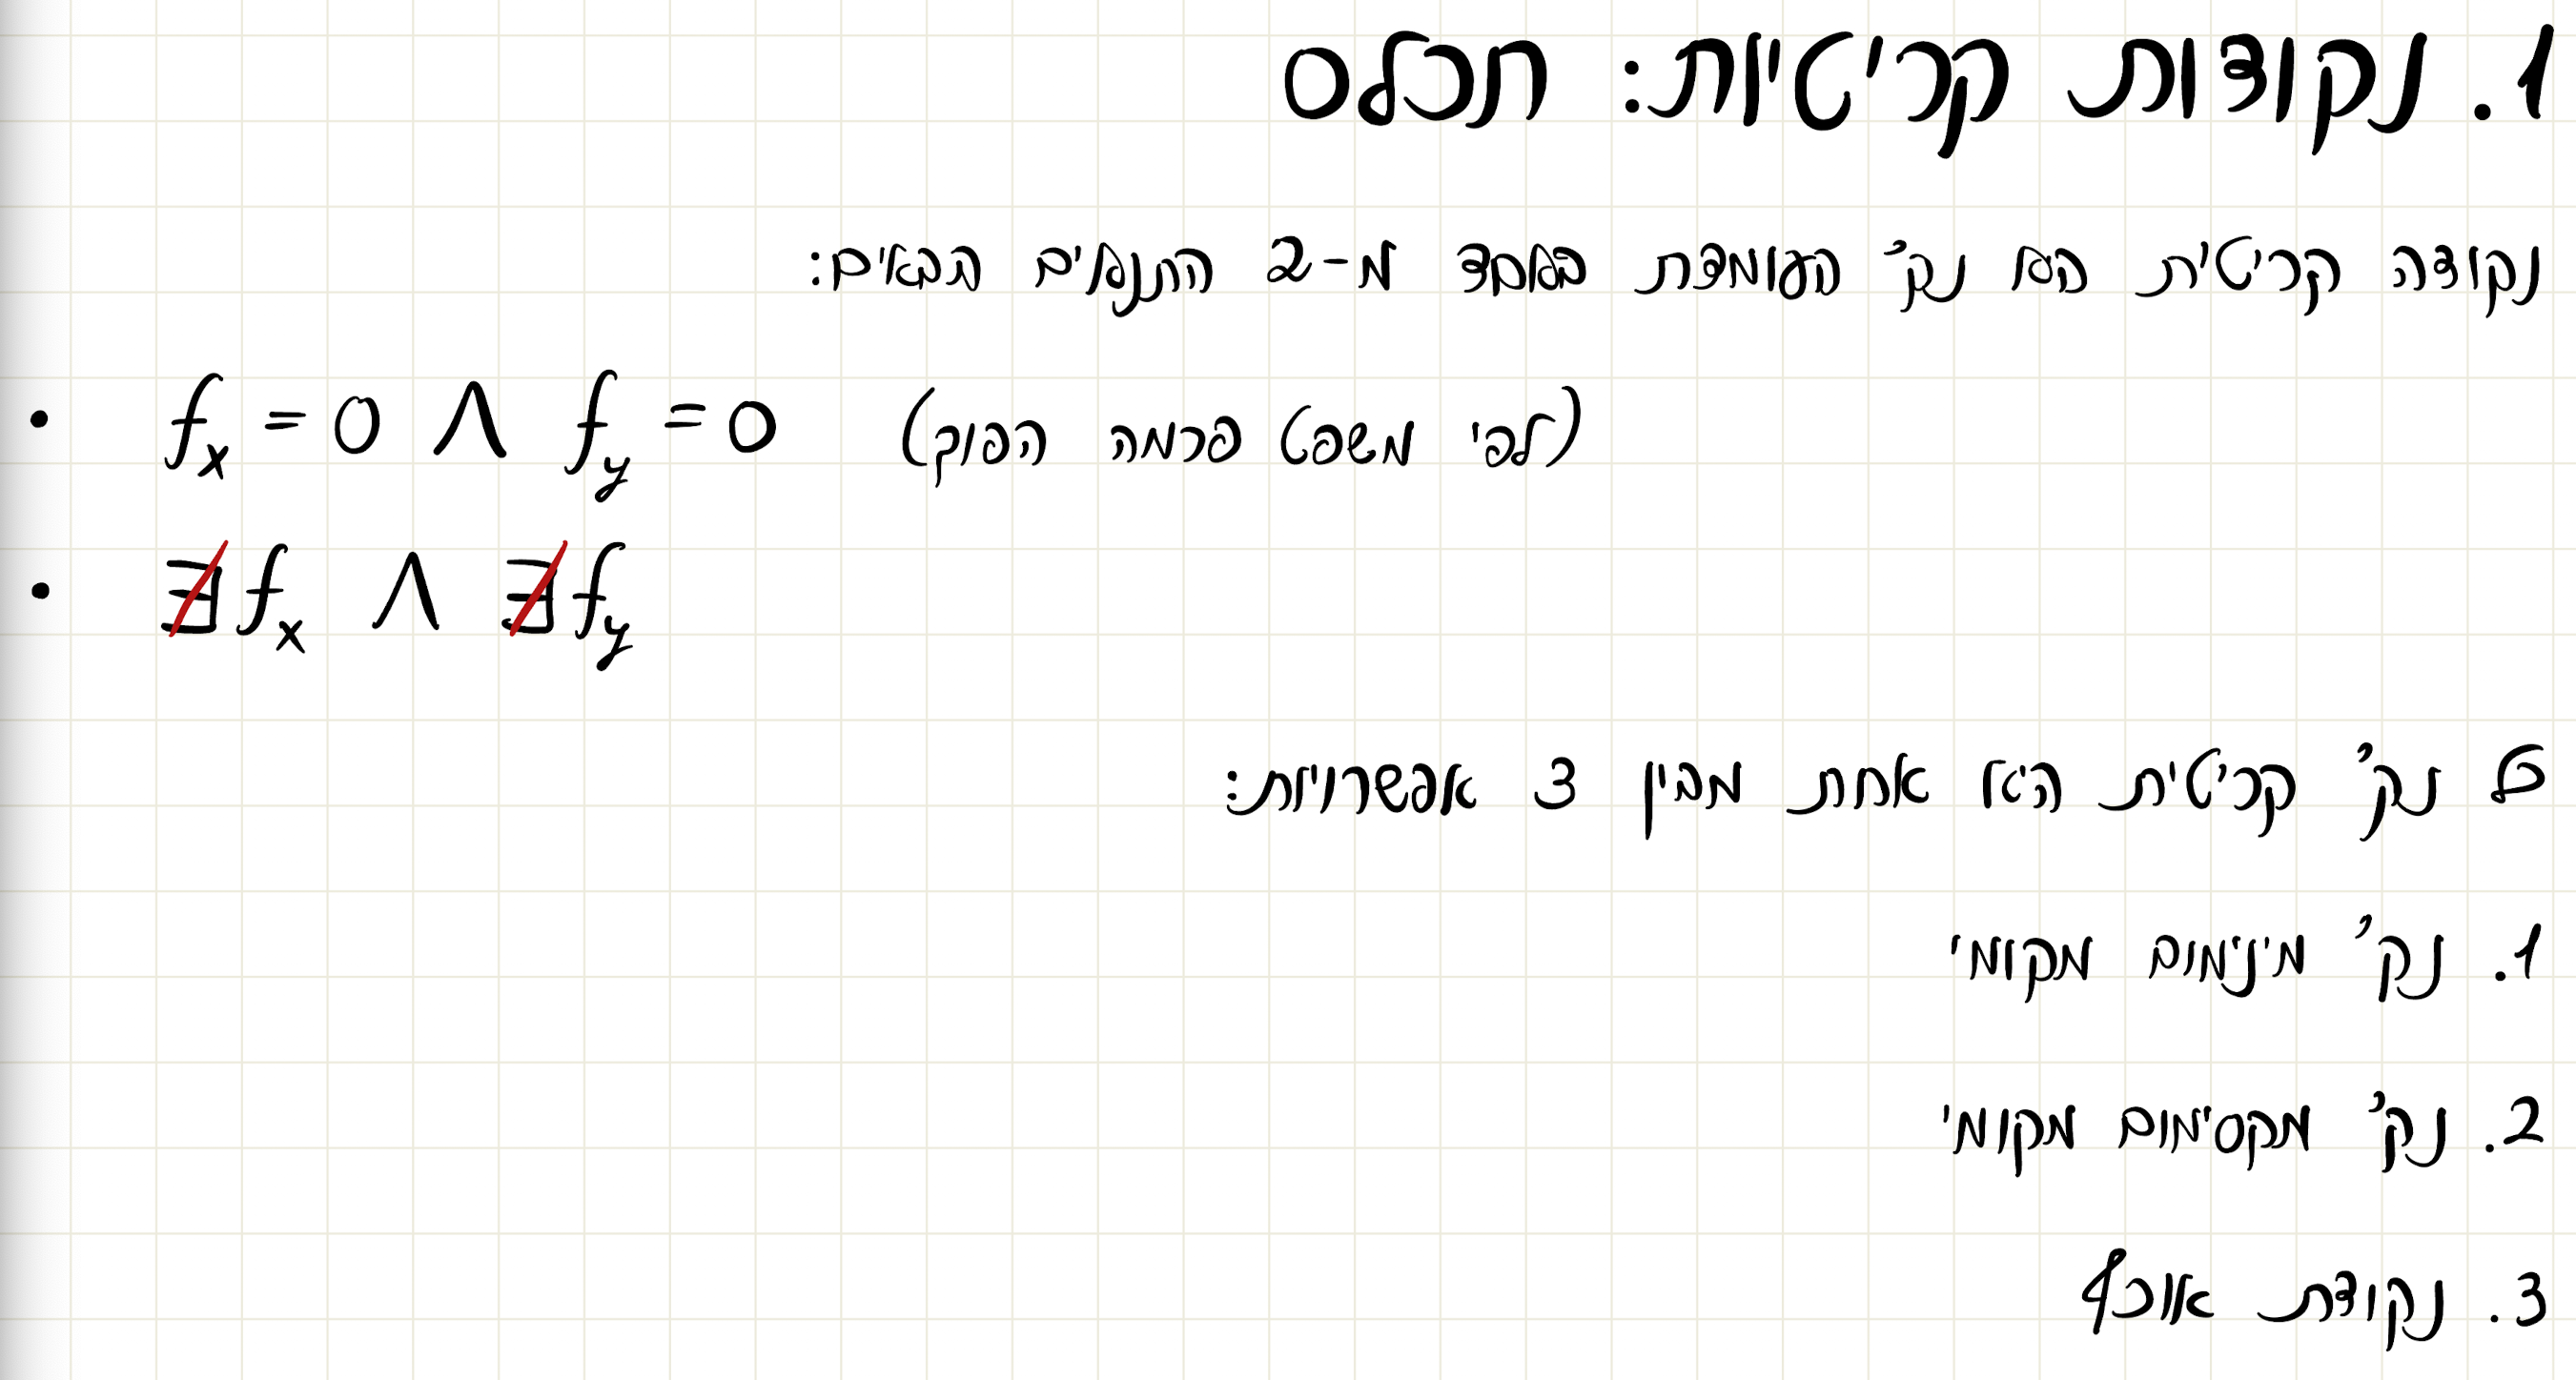 1. נקודות קריטיות: תכלס
נקודה קריטית היא נק' העומדת באחד מ-2 התנאים הבאים:
• fₓ = 0 ∧ f_y = 0 (לפי משפט פרמה הפוך)
• ∄fₓ ∧ ∄f_y
כל נק' קריטית היא אחת מבין 3 אפשרויות:
1. נק' מינימום מקומי
2. נק' מקסימום מקומי
3. נקודת אוכף